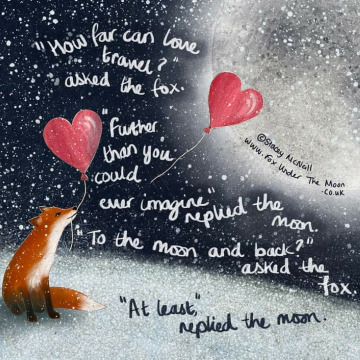 "How far can love
travel?"
asked the fox.
"Further
than you
could
ever imagine" replied the
moon.
"To the moon and back?"
asked the
fox.
"At least",
replied the moon.
©Stacey McNeill
www.Fox Under The Moon
.co.uk